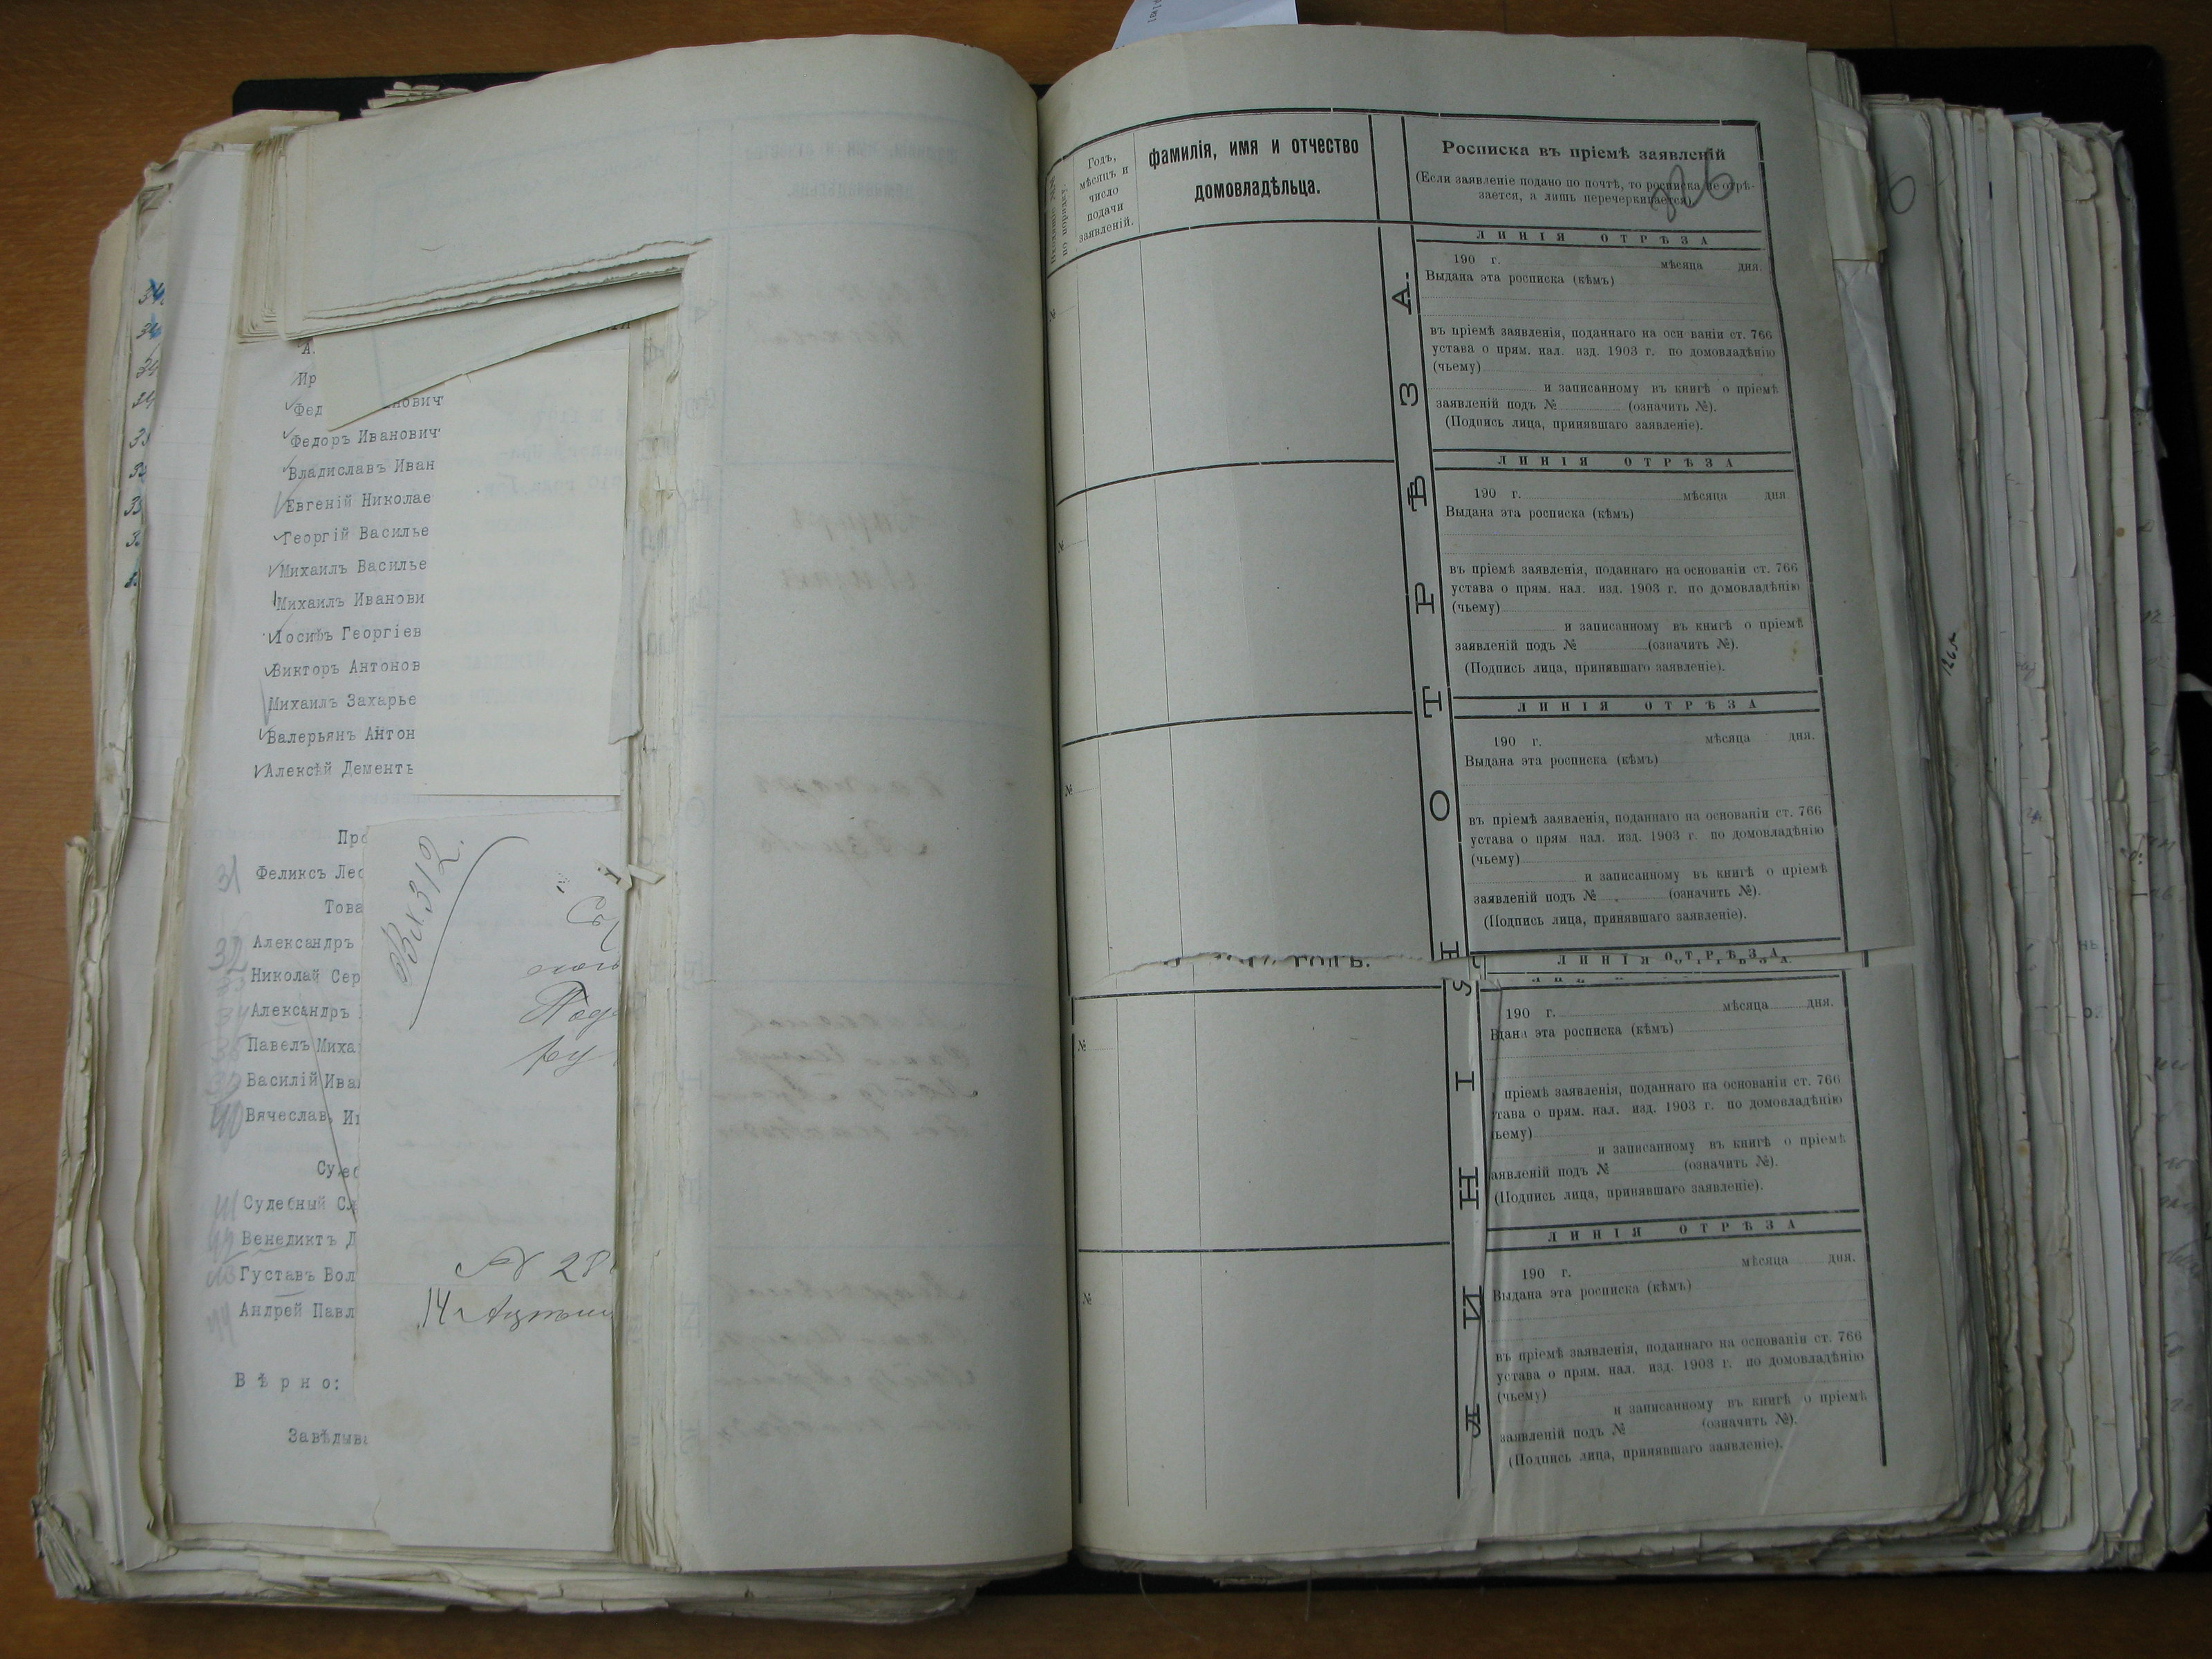 Ир
Фед
ановичъ
Федоръ Иванович
Владиславъ Иван
Евгеній Николае
Георгій Василье
Михаилъ Василье
Михаилъ Иванови
Іосифъ Георгіев
Викторъ Антонов
Михаилъ Захарье
Валерьянъ Антон
Алексѣй Дементь
Про
31 Феликсъ Лео
Това
32 Александръ
33 Николай Сер
34 Александръ
Павелъ Миха
Василій Ива
40 Вячеслав, Иг
Судеб
41 Судебный Сл
42 Венедиктъ Д
43 Густавъ Вол
44 Андрей Павл
Вѣрно:
Завѣдыва
Вх. 312.
Под
№ 28
14
по порядку.
Годъ,
мѣсяцъ и
число
подачи
заявленій.
фамилія, имя и отчество
домовладѣльца.
Росписка въ пріемѣ заявленій
(Если заявленіе подано по почтѣ, то росписка не отрѣ-
зается, а лишь перечеркивается)
326
ЛИНІЯ ОТРѢЗА.
ЛИНІЯ ОТРѢЗА
№
190 г. мѣсяца дня.
Выдана эта росписка (кѣмъ)
въ пріемѣ заявленія, поданнаго на осн ваніи ст. 766
устава о прям. нал. изд. 1903 г. по домовладѣнію
(чьему)
и записанному въ книгѣ о пріемѣ
заявленій подъ № (означить №).
(Подпись лица, принявшаго заявленіе).
ЛИНІЯ ОТРѢЗА
№
190 г. мѣсяца дня
Выдана эта росписка (кѣмъ)
въ пріемѣ заявленія, поданнаго на основаніи ст. 766
устава о прям. нал. изд. 1903 г. по домовладѣнію
(чьему)
и записанному въ книгѣ о пріемѣ
заявленій подъ № (означить №).
(Подпись лица, принявшаго заявленіе).
ЛИНІЯ ОТРѢЗА
№
190 г. мѣсяца дня.
Выдана эта росписка (кѣмъ)
въ пріемѣ заявленія, поданнаго на основаніи ст. 766
устава о прям нал. изд. 1903 г. по домовладѣнію
(чьему)
и записанному въ книгѣ о пріемѣ
заявленій подъ № (означить №).
(Подпись лица, принявшаго заявленіе).
ЛИНІЯ ОТРѢЗА
№
190 г. мѣсяца дня.
дана эта росписка (кѣмъ)
пріемѣ заявленія, поданнаго на основаніи ст. 766
тава о прям. нал. изд. 1903 г. по домовладѣнію
ьему)
и записанному въ книгѣ о пріемѣ
аявленій подъ № (означить №).
(Подпись лица, принявшаго заявленіе).
ЛИНІЯ ОТРѢЗА
№
190 г. мѣсяца дня.
Выдана эта росписка (кѣмъ)
въ пріемѣ заявленія, поданнаго на основаніи ст. 766
устава о прям. нал. изд. 1903 г. по домовладѣнію
(чьему)
и записанному въ книгѣ о пріемѣ
заявленій подъ № (означить №).
(Подпись лица, принявшаго заявленіе).